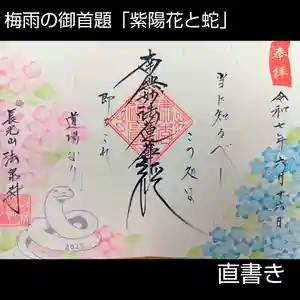 梅雨の御首題「紫陽花と蛇」
奉拝
令和七年六月十六日
当に知るべし
この処は
南無妙法蓮華経
即ちこれ
道場なり
長光山法泉寺
2025
直書き